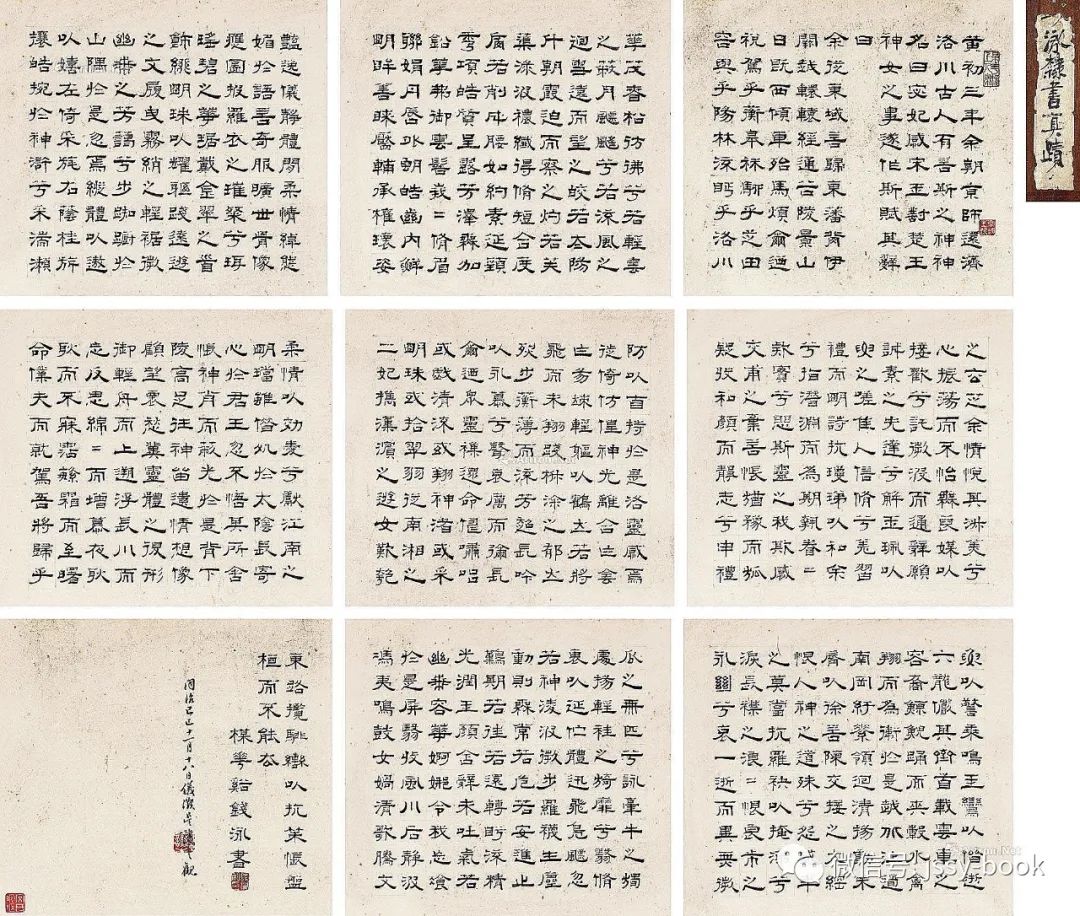 泳隸書真蹟
黃初三年余朝京師還濟
洛川古人有言斯之神神
名曰宓妃感宋玉對楚王
神女之事遂作斯賦其辭
曰
余從東域言歸東藩背伊
闕越轘轅經通谷陵景山
日既西傾車殆馬煩爾迺
税駕乎蘅皋秣駟乎芝田
容與乎陽林流眄乎洛川
華茂春松彷彿兮若輕雲
之蔽月飄飄兮若流風之
迴雪遠而望之皎若太陽
升朝霞迫而察之灼若芙
蕖淥波穠纖得脩短合度
肩若削成腰如約素延頸
秀項皓質呈露芳澤無加
鉛華弗御雲髻峩=脩眉
聯娟丹唇外朗皓齒內鮮
明眸善睞靨輔承權瓌姿
豔逸儀靜體閑柔情綽態
媚於語言奇服曠世骨像
應圖披羅衣之璀粲兮珥
瑤碧之華琚戴金翠之首
飾綴明珠以耀軀踐遠遊
之文履曳霧綃之輕裾微
幽蘭之芳藹兮步踟躕於
山隅於是忽焉縱體以遨
以嬉左倚采旄右蔭桂旂
攘皓捥於神滸兮采湍瀨
之玄芝余情悅其淑美兮
心振蕩而不怡無良媒以
接歡兮託微波而通辭願
誠素之先達兮解玉珮以
要之嗟佳人信脩兮羌習
禮而明詩抗瓊珶以和余
兮指潛淵而為期執眷=
款實兮思斯靈之我欺感
交甫之棄言悵猶豫而狐
疑收和顏而靜志兮申禮
防以自持於是洛靈感焉
徙倚仿偟神光離合乍陰
乍陽竦輕軀以鶴立若將
飛而未翔踐椒涂之郁烈
步蘅薄而流芳超長吟
以永慕兮聲哀厲而彌長
爾迺眾靈襍遝命儔嘯侶
或戲清流或翔神渚或采
明珠或拾翠羽從南湘之
二妃攜漢濱之遊女歎匏
瓜之無匹兮詠牽牛之獨
處揚輕袿之猗靡兮翳脩
袖以延佇體迅飛鳧飄忽
若神淩波微步羅襪生塵
動則無常若危若安進止
難期若往若還轉眄流精
光潤玉顏含辭未吐氣若
幽蘭華容婀娜令我忘飡
於是屏翳收風川后靜波
馮夷鳴鼓女媧清歌騰文
以警乘鳴玉鸞以偕逝
六龍儼其齊首載雲車之
容裔鯨鯢踊而夾轂水禽
翔而為衛於是越北沚過
南岡紆素領迴清揚動朱
脣以徐言陳交接之大綱
恨人神之道殊兮怨盛年
之莫當抗羅袂以掩涕兮
淚長襟之浪=恨良會之
永絕兮哀一逝而異鄉微
柔情以効愛兮獻江南之
明璫雖潛處於太陰長寄
心於君王忽不悟其所舍
悵神宵而蔽光於是背下
陵高足往神留遺情想像
顧望懷愁冀靈體之復形
御輕舟而上遡浮長川而
忘反思綿=而增慕夜耿
耿而不寐霑繁霜而至曙
命僕夫而就駕吾將歸乎
東路攬騑轡以抗策悵盤
桓而不能去
楳華谿錢泳書
同治己巳十一月十八日儀徵吳讓之觀
微信号:jsy-book